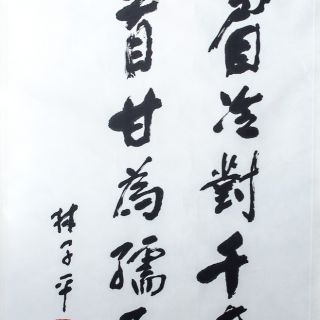 眉冷對千
首甘為孺
林子平